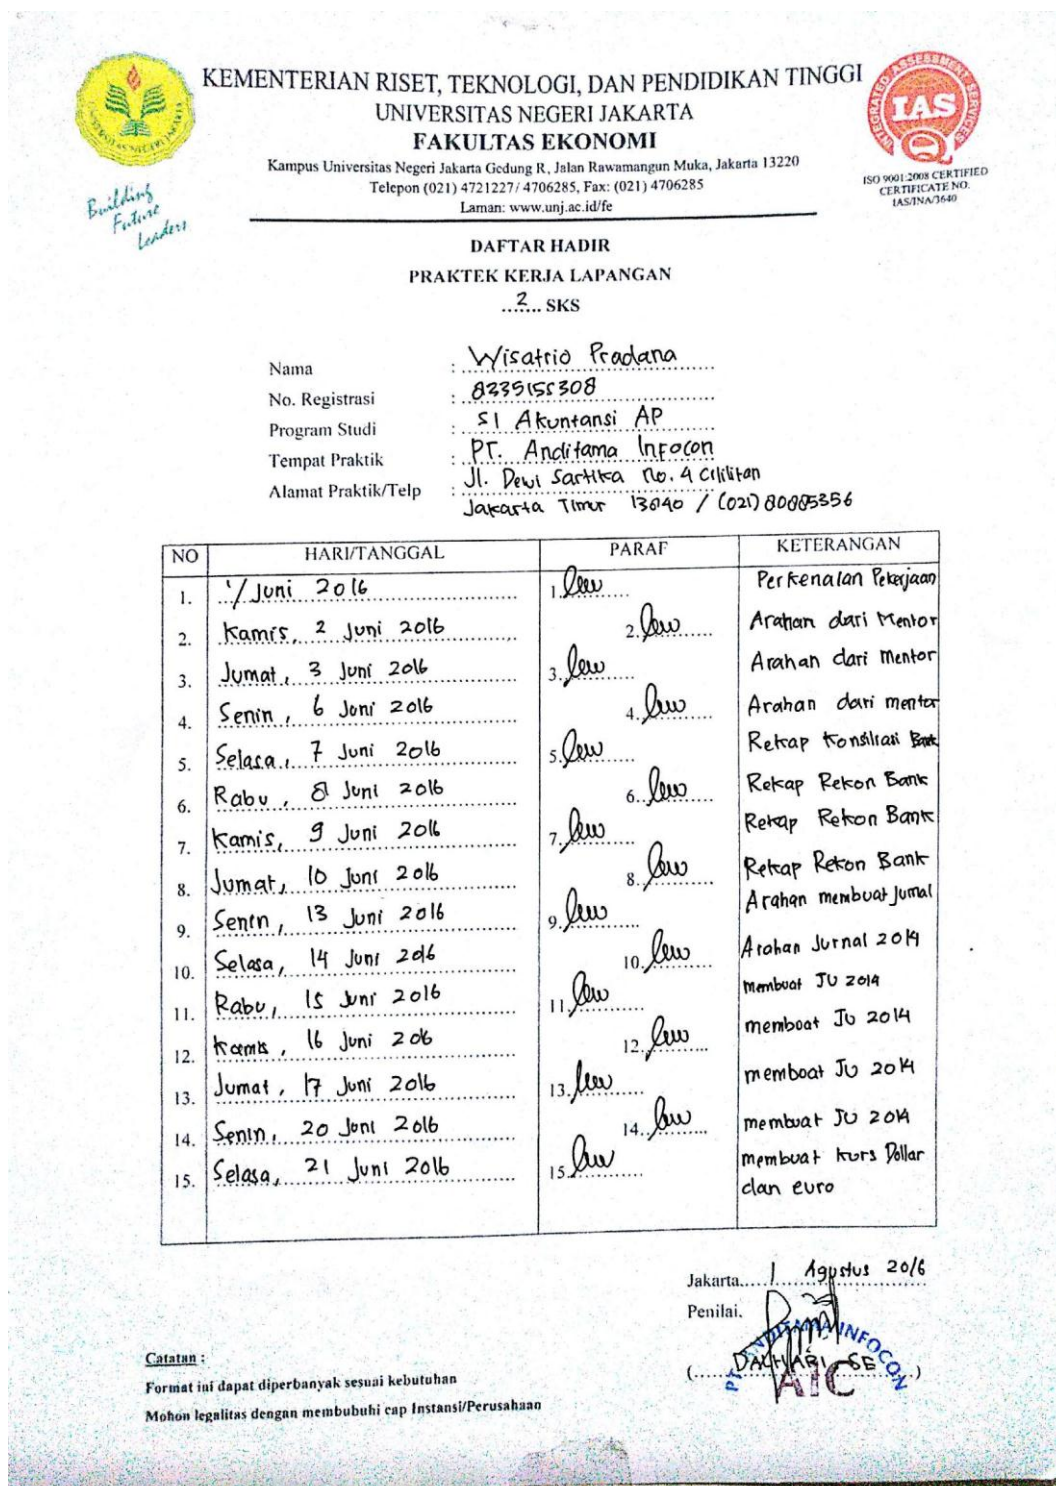 KEMENTERIAN RISET, TEKNOLOGI, DAN PENDIDIKAN TINGGI
UNIVERSITAS NEGERI JAKARTA
FAKULTAS EKONOMI
Kampus Universitas Negeri Jakarta Gedung R, Jalan Rawamangun Muka, Jakarta 13220
Telepon (021) 4721227/ 4706285, Fax: (021) 4706285
Laman: www.unj.ac.id/fe
UNIVERSITAS NEGERI JAKARTA
Building
Future
Leaders
INTEGRATED ASSESSMENT SERVICES
IAS
ISO 9001:2008 CERTIFIED
CERTIFICATE NO.
IAS/INA/3640
DAFTAR HADIR
PRAKTEK KERJA LAPANGAN
...2... SKS
Nama : Wisatrio Pradana
No. Registrasi : 8335155308
Program Studi : S1 Akuntansi AP
Tempat Praktik : PT. Anditama Infocon
Alamat Praktik/Telp : Jl. Dewi Sartika No. 4 Cililitan
Jakarta Timur 13640 / (021) 80885356
NO HARI/TANGGAL PARAF KETERANGAN
1. 1/ Juni 2016 1. Perkenalan Pekerjaan
2. Kamis, 2 Juni 2016 2. Arahan dari Mentor
3. Jumat, 3 Juni 2016 3. Arahan dari Mentor
4. Senin, 6 Juni 2016 4. Arahan dari mentor
5. Selasa, 7 Juni 2016 5. Rekap Konsiliasi Bank
6. Rabu, 8 Juni 2016 6. Rekap Rekon Bank
7. Kamis, 9 Juni 2016 7. Rekap Rekon Bank
8. Jumat, 10 Juni 2016 8. Rekap Rekon Bank
9. Senin, 13 Juni 2016 9. Arahan membuat Jurnal
10. Selasa, 14 Juni 2016 10. Arahan Jurnal 2014
11. Rabu, 15 Juni 2016 11. membuat JU 2014
12. Kamis, 16 Juni 2016 12. membuat JU 2014
13. Jumat, 17 Juni 2016 13. membuat JU 2014
14. Senin, 20 Juni 2016 14. membuat JU 2014
15. Selasa, 21 Juni 2016 15. membuat kurs Dollar
dan euro
Jakarta..... 1 Agustus 2016
Penilai.
(.....DACHARI SE.....)
PT. ANDITAMA INFOCON
AIC
Catatan :
Format ini dapat diperbanyak sesuai kebutuhan
Mohon legalitas dengan membubuhi cap Instansi/Perusahaan